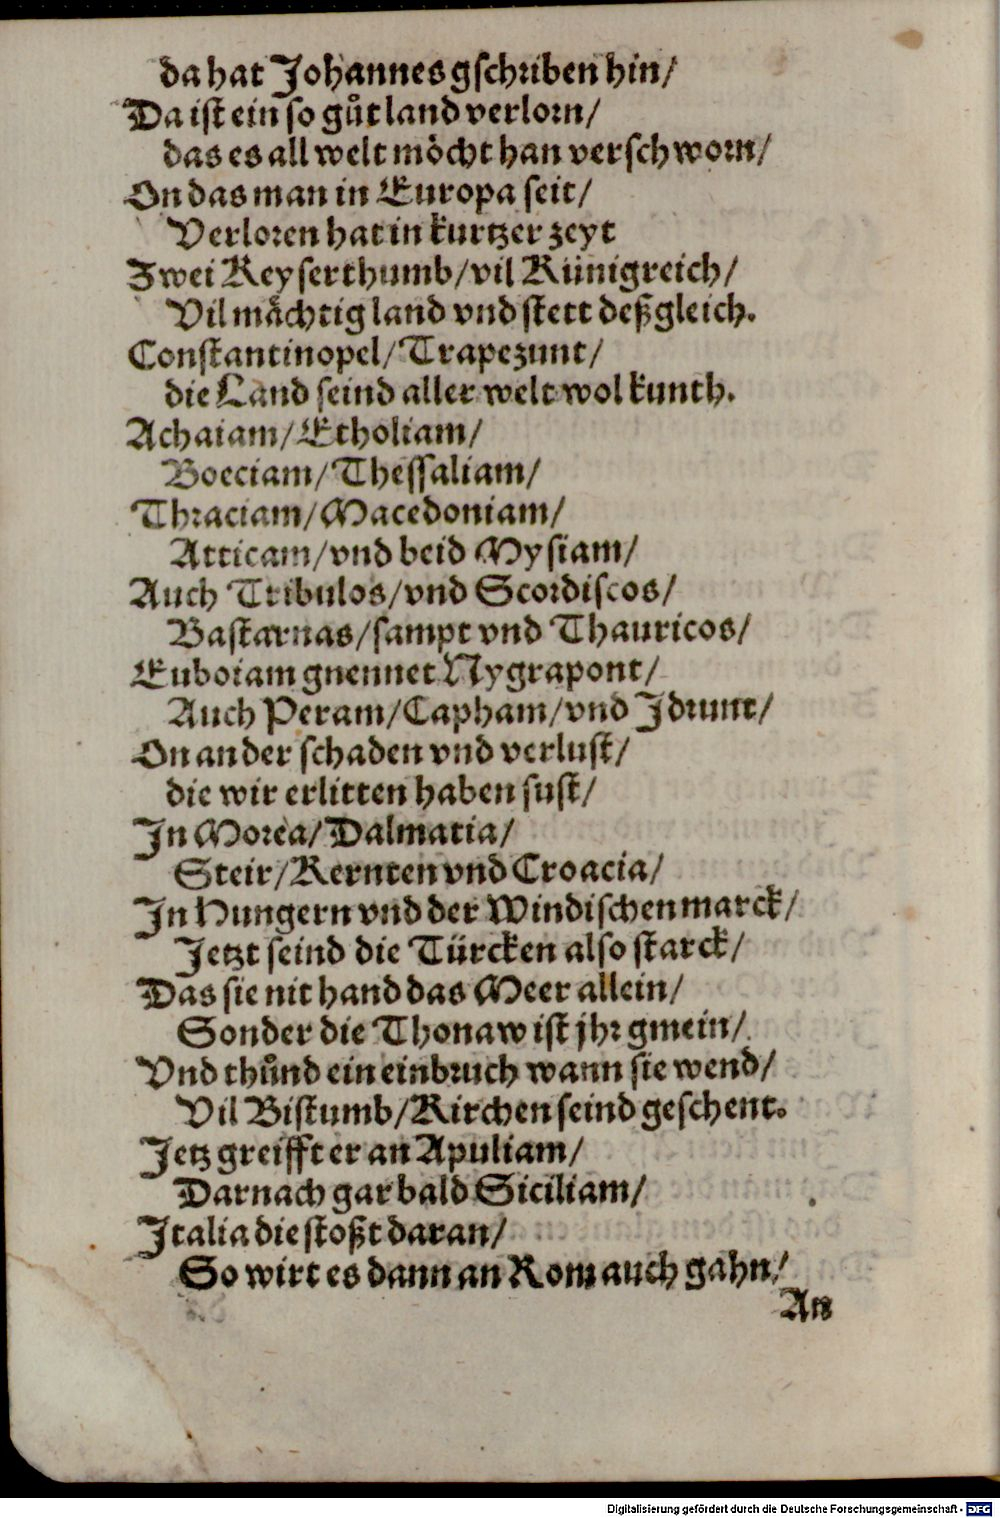 da hat Johannes gschriben hin/
Da ist ein so gůt land verlorn/
das es all welt möcht han verschworn/
On das man in Europa seit/
Verloren hat in kurtzer zeyt
Zwei Keyserthumb/vil Künigreich/
Vil mächtig land vnd stett deßgleich.
Constantinopel/Trapezunt/
die Land seind aller welt wol kunth.
Achaiam/Etholiam/
Boeciam/Thessaliam/
Thraciam/Macedoniam/
Atticam/vnd beid Mysiam/
Auch Tribulos/vnd Scordiscos/
Bastarnas/sampt vnd Thauricos/
Euboiam gnennet Nygrapont/
Auch Peram/Capham/vnd Jdrunt/
On ander schaden vnd verlust/
die wir erlitten haben sust/
Jn Morea/Dalmatia/
Steir/Kernten vnd Croacia/
Jn Hungern vnd der Windischen marck/
Jetzt seind die Türcken also starck/
Das sie nit hand das Meer allein/
Sonder die Thonaw ist jhr gmein/
Vnd thůnd ein einbruch wann sie wend/
Vil Bistumb/Kirchen seind geschent.
Jetz greifft er an Apuliam/
Darnach gar bald Siciliam/
Jtalia die stoßt daran/
So wirt es dann an Rom auch gahn/
An
Digitalisierung gefördert durch die Deutsche Forschungsgemeinschaft - DFG